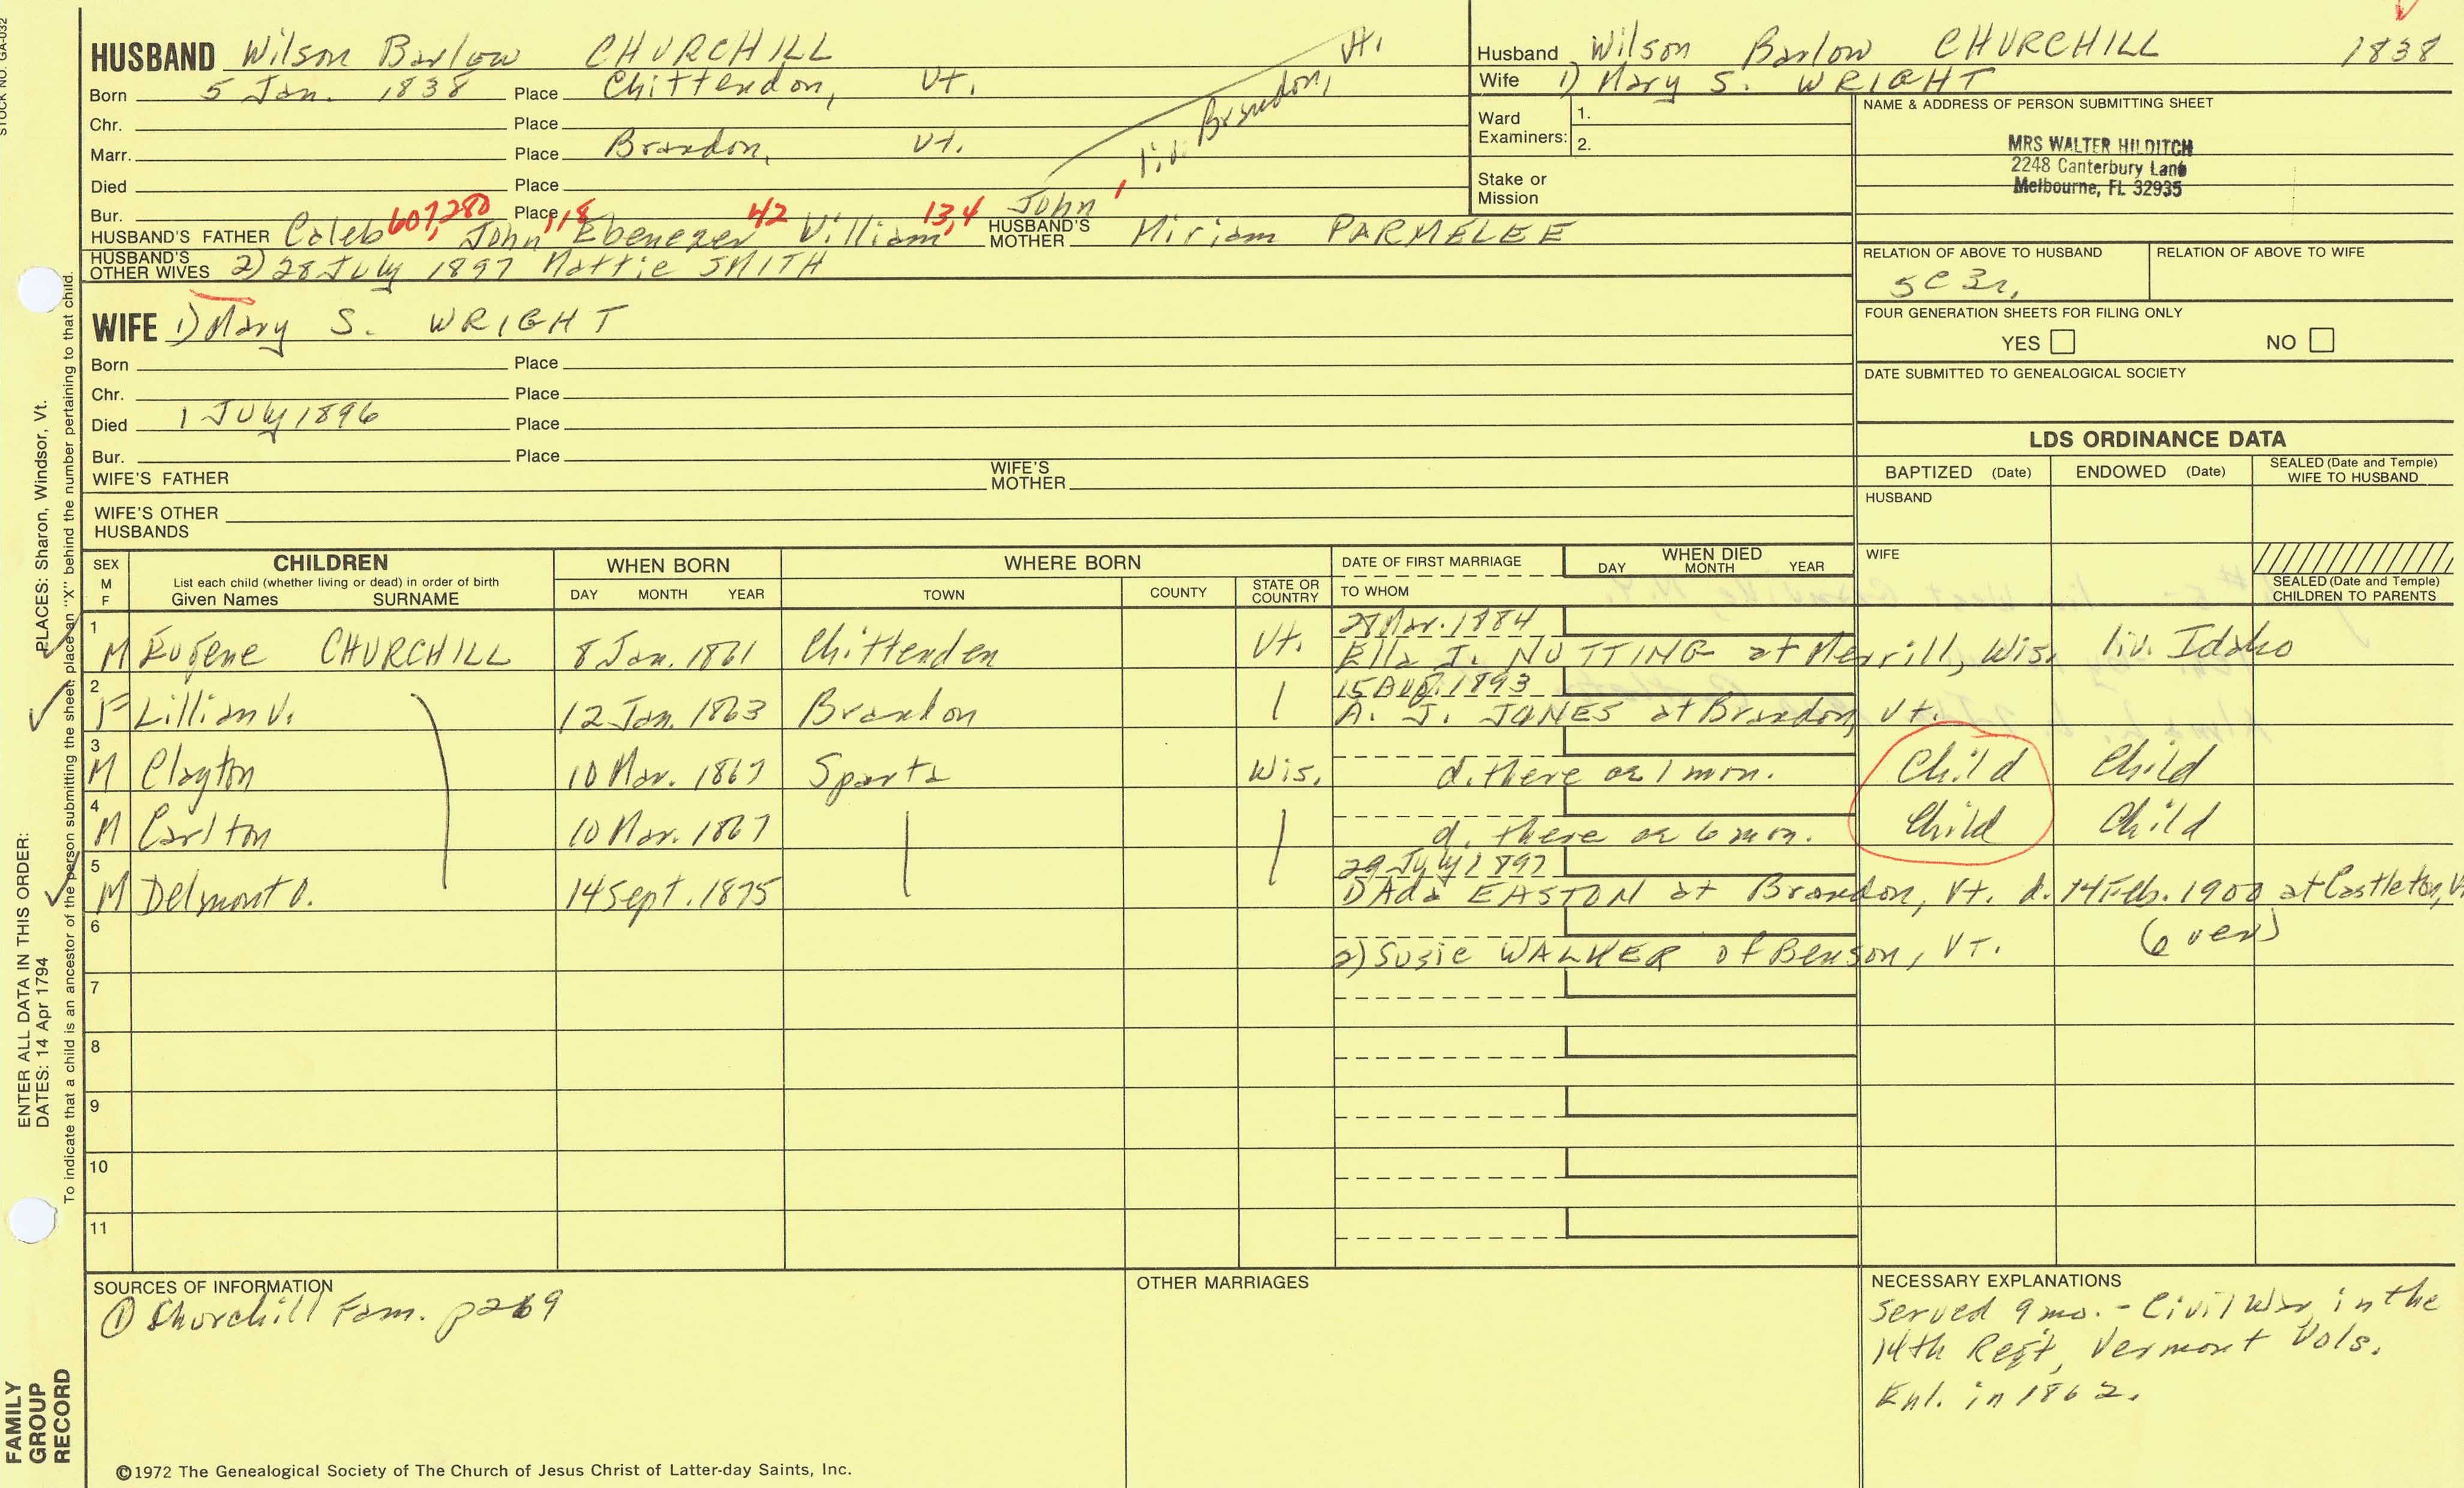 STOCK NO. GA-032
HUSBAND Wilson Barlow CHURCHILL
Born 5 Jan. 1838 Place Chittendon, Vt.
Chr. Place
Marr. Place Brandon, Vt.
liv. Brandon, Vt.
Died Place
Bur. Place
HUSBAND'S FATHER Caleb 607, 280 John 118 Ebenezer 42 William 13,4 John 1 HUSBAND'S MOTHER Miriam PARMELEE
HUSBAND'S OTHER WIVES 2) 28 July 1897 Mattie SMITH
WIFE 1) Mary S. WRIGHT
Born Place
Chr. Place
Died 1 July 1896 Place
Bur. Place
WIFE'S FATHER WIFE'S MOTHER
WIFE'S OTHER HUSBANDS
Husband Wilson Barlow CHURCHILL 1838
Wife 1) Mary S. WRIGHT
Ward Examiners: 1.
2.
Stake or Mission
NAME & ADDRESS OF PERSON SUBMITTING SHEET
MRS WALTER HILDITCH
2248 Canterbury Lane
Melbourne, FL 32935
RELATION OF ABOVE TO HUSBAND RELATION OF ABOVE TO WIFE
5C 3r.
FOUR GENERATION SHEETS FOR FILING ONLY
YES NO
DATE SUBMITTED TO GENEALOGICAL SOCIETY
LDS ORDINANCE DATA
BAPTIZED (Date) ENDOWED (Date) SEALED (Date and Temple) WIFE TO HUSBAND
HUSBAND
WIFE
SEALED (Date and Temple) CHILDREN TO PARENTS
SEX M F CHILDREN WHEN BORN WHERE BORN DATE OF FIRST MARRIAGE WHEN DIED
List each child (whether living or dead) in order of birth
Given Names SURNAME DAY MONTH YEAR TOWN COUNTY STATE OR COUNTRY TO WHOM DAY MONTH YEAR
1 28 Mar. 1884
M Eugene CHURCHILL 8 Jan. 1861 Chittenden Vt. Ella I. NUTTING at Merrill, Wis. liv. Idaho
2 15 Aug. 1893
F Lillian V. 12 Jan. 1863 Brandon A. J. JONES at Brandon, Vt.
3
M Clayton 10 Mar. 1867 Sparta Wis. d. there ae 1 mon. Child Child
4
M Carlton 10 Mar. 1867 d. there ae 6 mon. Child Child
5 29 July 1897
M Delmont O. 14 Sept. 1875 1) Ada EASTON at Brandon, Vt. d. 14 Feb. 1900 at Castleton, Vt
6 (over)
2) Susie WALKER of Benson, Vt.
7
8
9
10
11
SOURCES OF INFORMATION
① Churchill Fam. p269
OTHER MARRIAGES
NECESSARY EXPLANATIONS
Served 9 mo. - Civil War, in the
14th Regt, Vermont Vols.
Enl. in 1862.
©1972 The Genealogical Society of The Church of Jesus Christ of Latter-day Saints, Inc.
FAMILY GROUP RECORD
ENTER ALL DATA IN THIS ORDER:
DATES: 14 Apr 1794 PLACES: Sharon, Windsor, Vt.
To indicate that a child is an ancestor of the person submitting the sheet, place an "X" behind the number pertaining to that child.